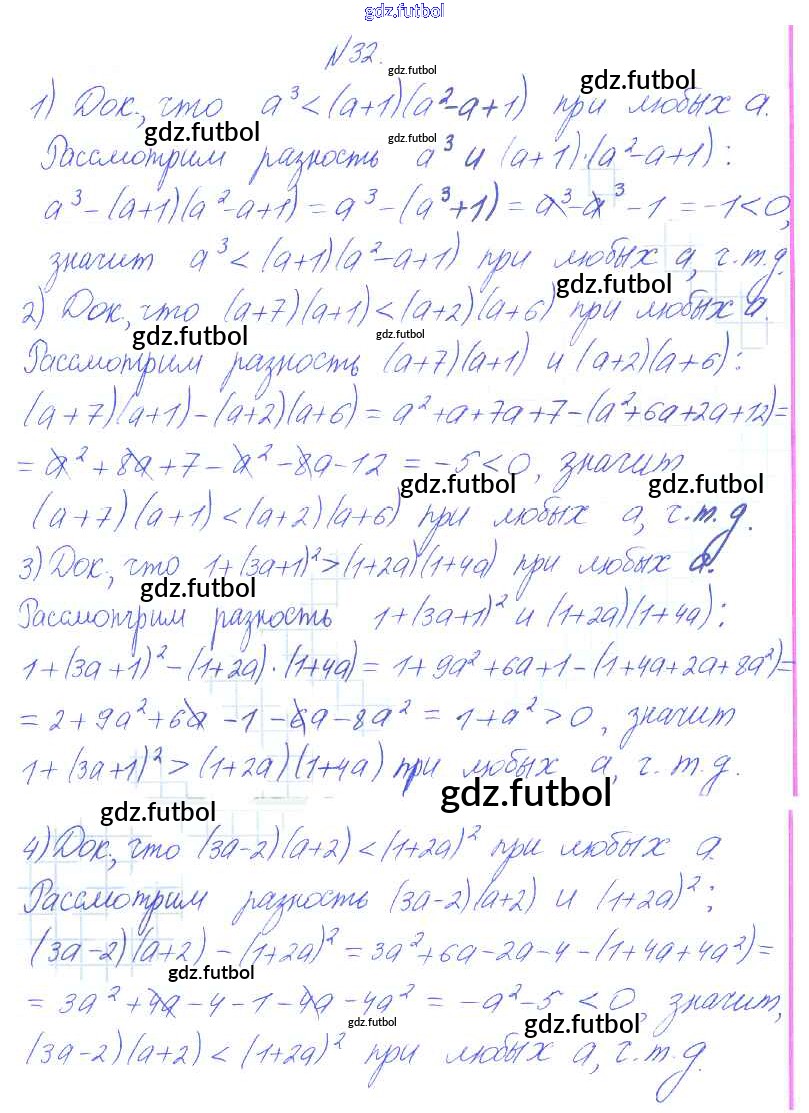 gdz.futbol
N 32.
gdz.futbol
gdz.futbol
1) Док., что a³ < (a+1)(a²-a+1) при любых a.
gdz.futbol
gdz.futbol
Рассмотрим разность a³ и (a+1)·(a²-a+1):
a³-(a+1)(a²-a+1) = a³-(a³+1) = a³-a³-1 = -1<0,
значит a³ < (a+1)(a²-a+1) при любых a, ч.т.д.
gdz.futbol
2) Док., что (a+7)(a+1)<(a+2)(a+6) при любых a.
gdz.futbol
gdz.futbol
Рассмотрим разность (a+7)(a+1) и (a+2)(a+6):
(a+7)(a+1)-(a+2)(a+6) = a²+a+7a+7-(a²+6a+2a+12)=
= a²+8a+7-a²-8a-12 = -5<0, значит
gdz.futbol
gdz.futbol
(a+7)(a+1)<(a+2)(a+6) при любых a, ч.т.д.
3) Док., что 1+(3a+1)²>(1+2a)(1+4a) при любых a.
gdz.futbol
Рассмотрим разность 1+(3a+1)² и (1+2a)(1+4a):
1+(3a+1)²-(1+2a)·(1+4a) = 1+9a²+6a+1-(1+4a+2a+8a²)=
= 2+9a²+6a-1-6a-8a² = 1+a²>0, значит
1+(3a+1)²>(1+2a)(1+4a) при любых a, ч.т.д.
gdz.futbol
gdz.futbol
4) Док., что (3a-2)(a+2)<(1+2a)² при любых a
Рассмотрим разность (3a-2)(a+2) и (1+2a)²:
(3a-2)(a+2)-(1+2a)² = 3a²+6a-2a-4-(1+4a+4a²)=
gdz.futbol
= 3a²+4a-4-1-4a-4a² = -a²-5<0, значит,
gdz.futbol
gdz.futbol
(3a-2)(a+2)<(1+2a)² при любых a, ч.т.д.